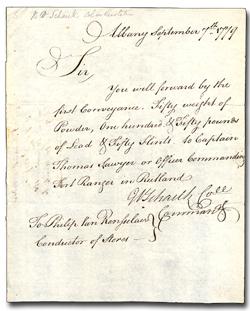 Albany September 7th 1779
Sir
You will forward by the
first Conveyance. Fifty weight of
Powder, One hundred & Fifty pounds
of Lead & Fifty Flints to Captain
Thomas Sawyer or Officer Commanding
Fort Ranger in Rutland
Commandt
To Philip Van Rensselaer
Conductor of Stores